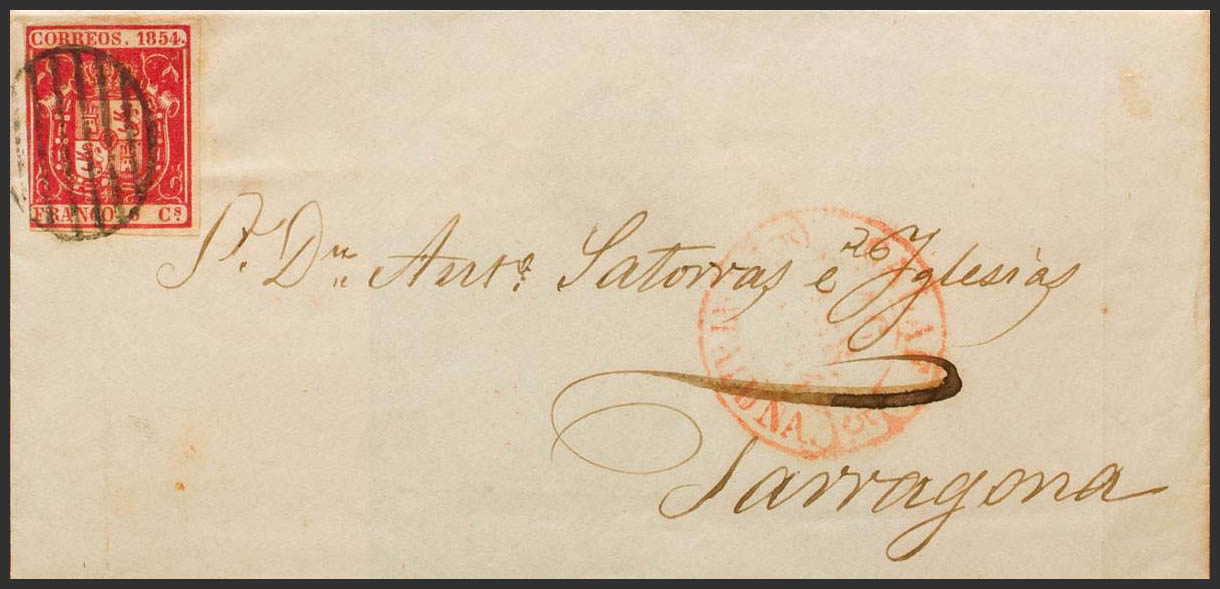 CORREOS. 1854.
FRANCO: 6 Cs
Sr. Dn. Anto. Satorras e Yglesias
26
Tarragona